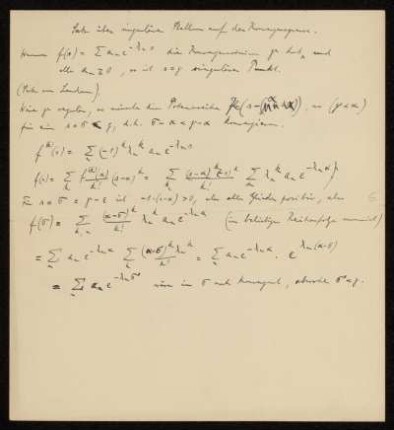 Satz über singuläre Stellen auf der Konvergenzgeraden.
Wenn f(s) = Σ aₙ e^{-λₙ s} die Konvergenzabszisse g hat, und
alle aₙ ≥ 0, so ist s = g singulärer Punkt.
(Satz von Landau).
Wäre g regulär, so müsste die Potenzreihe
für ein s = σ < g, d.h. konvergieren.
f^{(k)}(s) = Σ (-1)^k λₙ^k aₙ e^{-λₙ s}
f(s) = Σ f^{(k)}(α)/k! (s-α)^k = Σ (s-α)^k (-1)^k / k! Σ λₙ^k aₙ e^{-λₙ α}
Für s = σ ist -1·(s-α) > 0, also alle Glieder positiv, also
f(σ) = Σ (α-σ)^k / k! λₙ^k aₙ e^{-λₙ α} (in beliebiger Reihenfolge summiert)
= Σ aₙ e^{-λₙ α} Σ (α-σ)^k λₙ^k / k! = Σ aₙ e^{-λₙ α} · e^{λₙ(α-σ)}
= Σ aₙ e^{-λₙ σ} wäre in σ noch konvergent, obwohl σ < g.